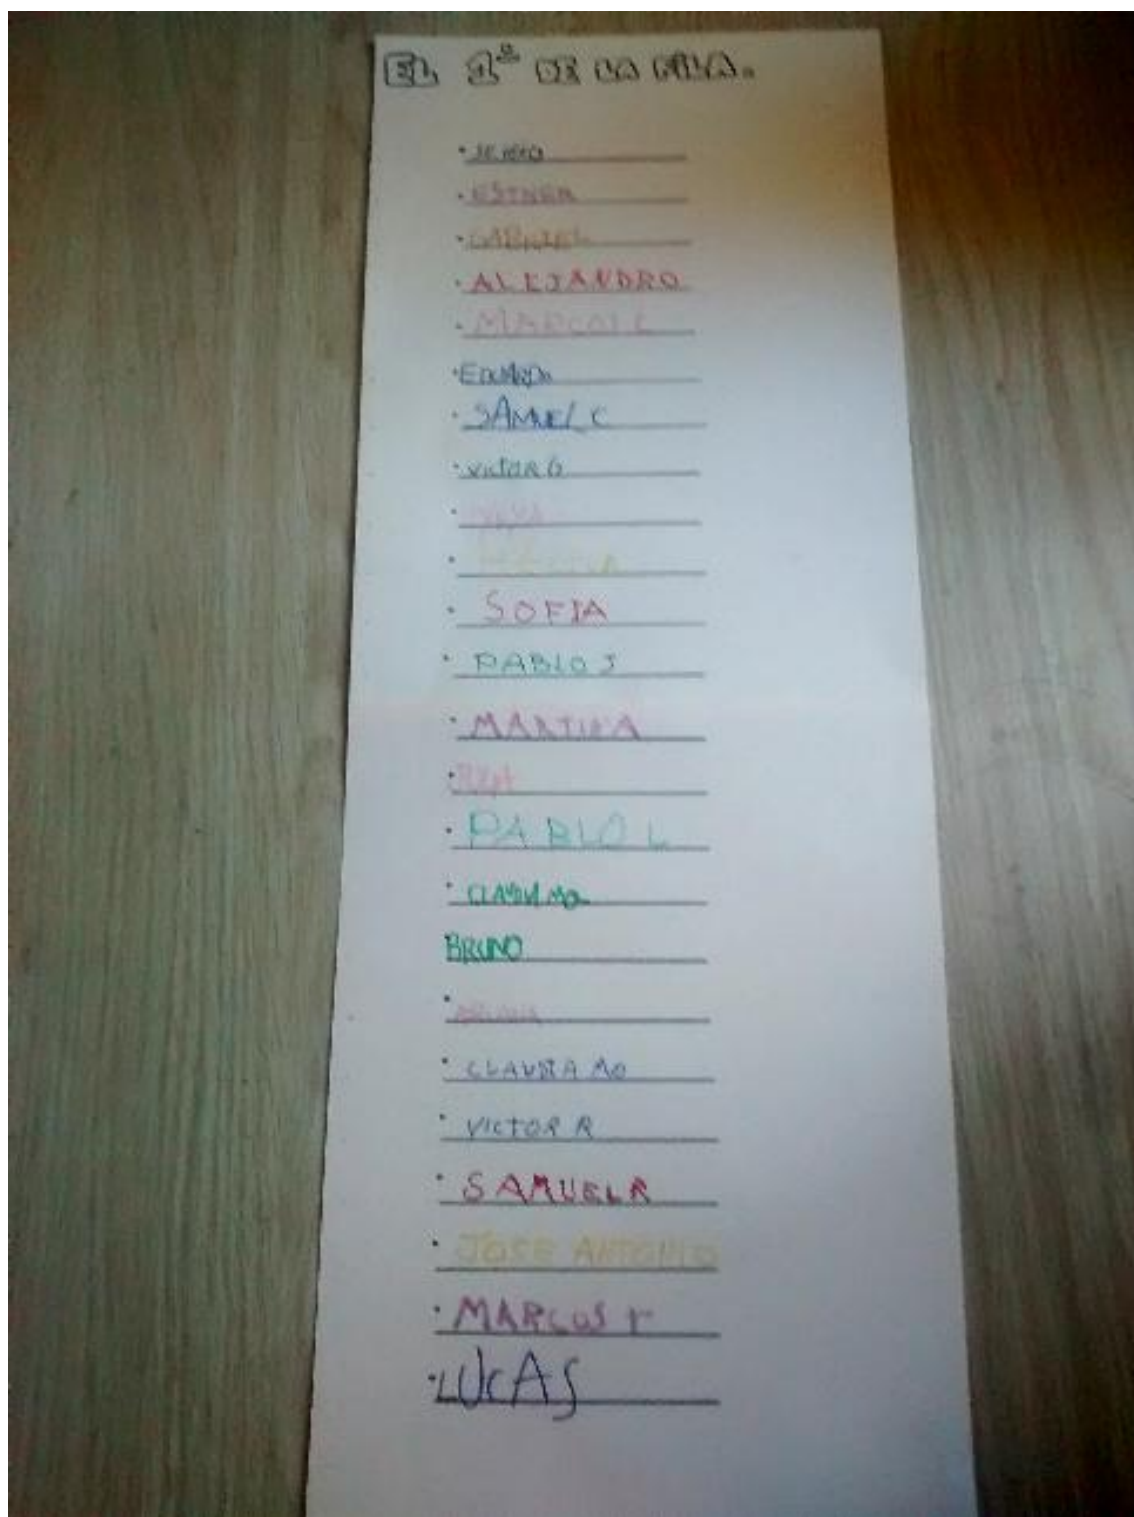 EL 1º DE LA FILA.
ESTHER
GABRIEL
ALEJANDRO
MARCOS L
EDUARDO
SAMUEL C
VICTOR G
SOFIA
PABLO J
MARTINA
PABLO L
BRUNO
CLAUDIA MO
VICTOR R
SAMUEL R
JOSE ANTONIO
MARCOS r
LUCAS